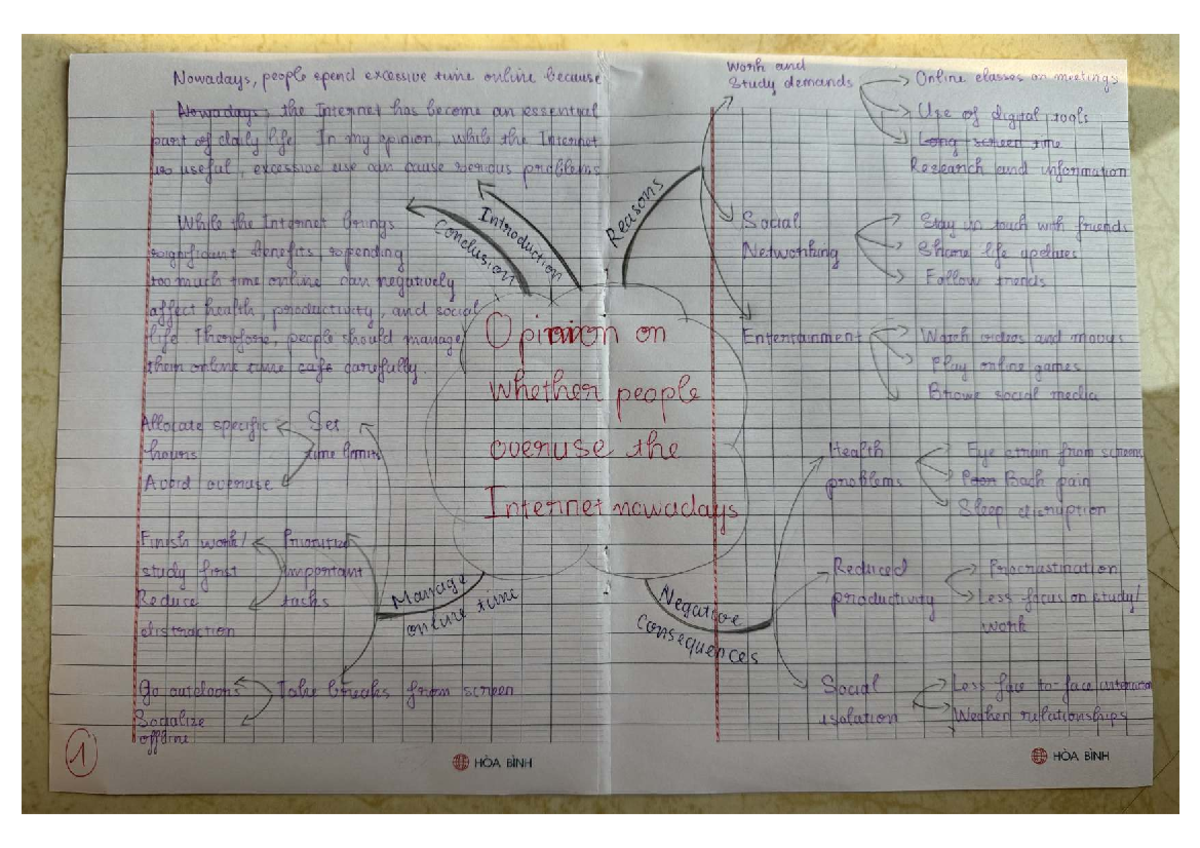 Nowadays, people spend excessive time online because
Nowadays, the Internet has become an essential
part of daily life In my opinion, while the Internet
is useful, excessive use can cause serious problems
Introduction
Conclusion
While the Internet brings
significant benefits spending
too much time online can negatively
affect health, productivity, and social
life Therefore, people should manage
their online time carefully.
Opinion on
whether people
overuse the
Internet nowadays
Reasons
Work and
Study demands
Online classes or meetings
Use of digital tools
Long screen time
Research and information
Social
Networking
Stay in touch with friends
Share life updates
Follow trends
Entertainment
Watch videos and movies
Play online games
Browse social media
Negative
consequences
Health
problems
Eye strain from screens
Poor Back pain
Sleep disruption
Reduced
productivity
Procrastination
Less focus on study/
work
Social
isolation
Less face-to-face
Weaker relationships
Manage
online time
Set
time limits
Allocate specific
hours
Avoid overuse
Prioritize
important
tasks
Finish work/
study first
Reduce
distraction
Take breaks from screen
Go outdoors
Socialize
offline
1
HÒA BÌNH
HÒA BÌNH